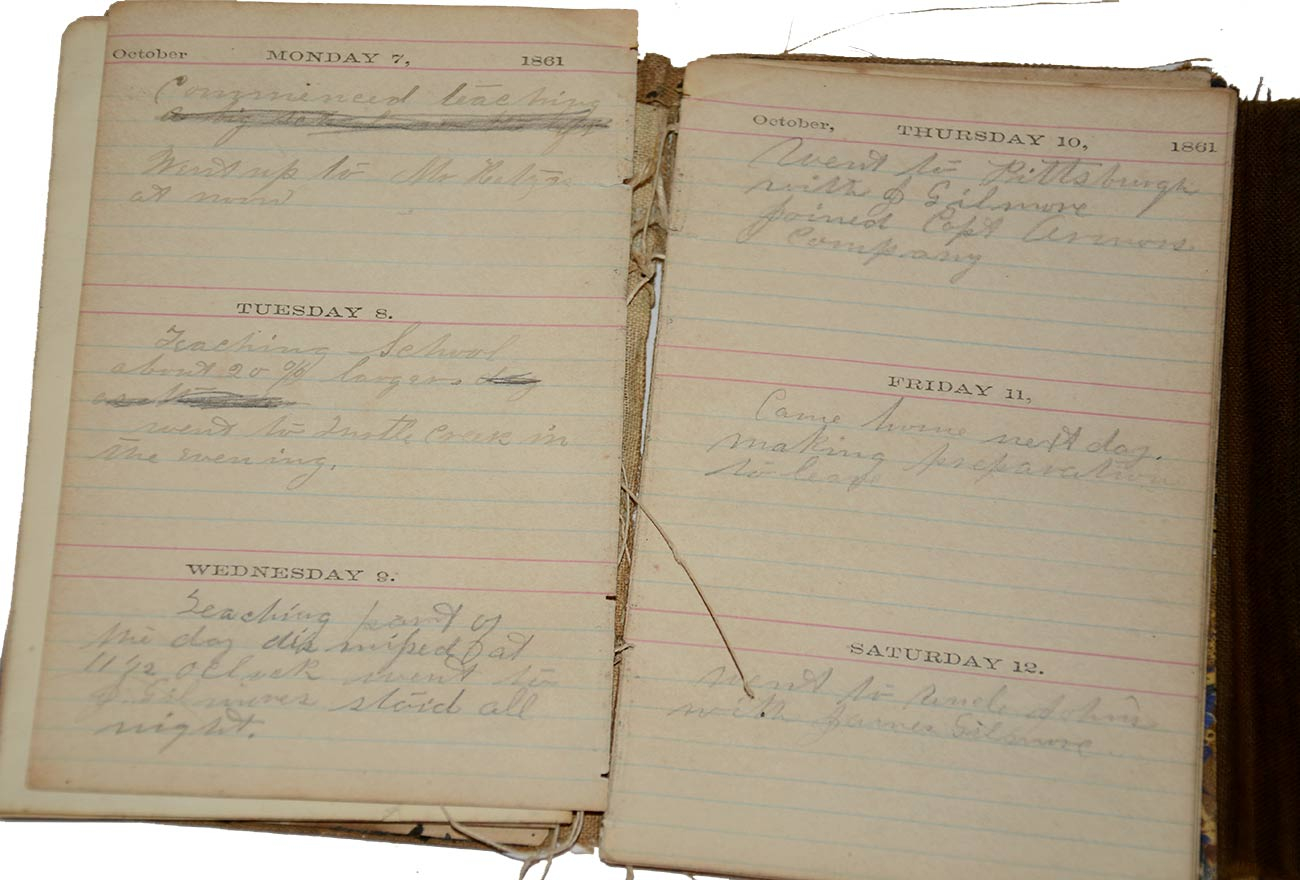 October MONDAY 7, 1861
Commenced teaching
a big
Went up to Mr
at noon
TUESDAY 8.
Teaching School
about 20 % larger.
went to Turtle Creek in
the evening.
WEDNESDAY 9.
Teaching part of
the day dismissed at
11 1/2 oclock went to
J. Gilmores staid all
night.
October, THURSDAY 10, 1861
Went to Pittsburgh
with J Gilmore
joined Capt Armors
Company
FRIDAY 11,
Came home next day.
making preparations
to leave
SATURDAY 12.
went to Uncle Johns
with James Gilmore